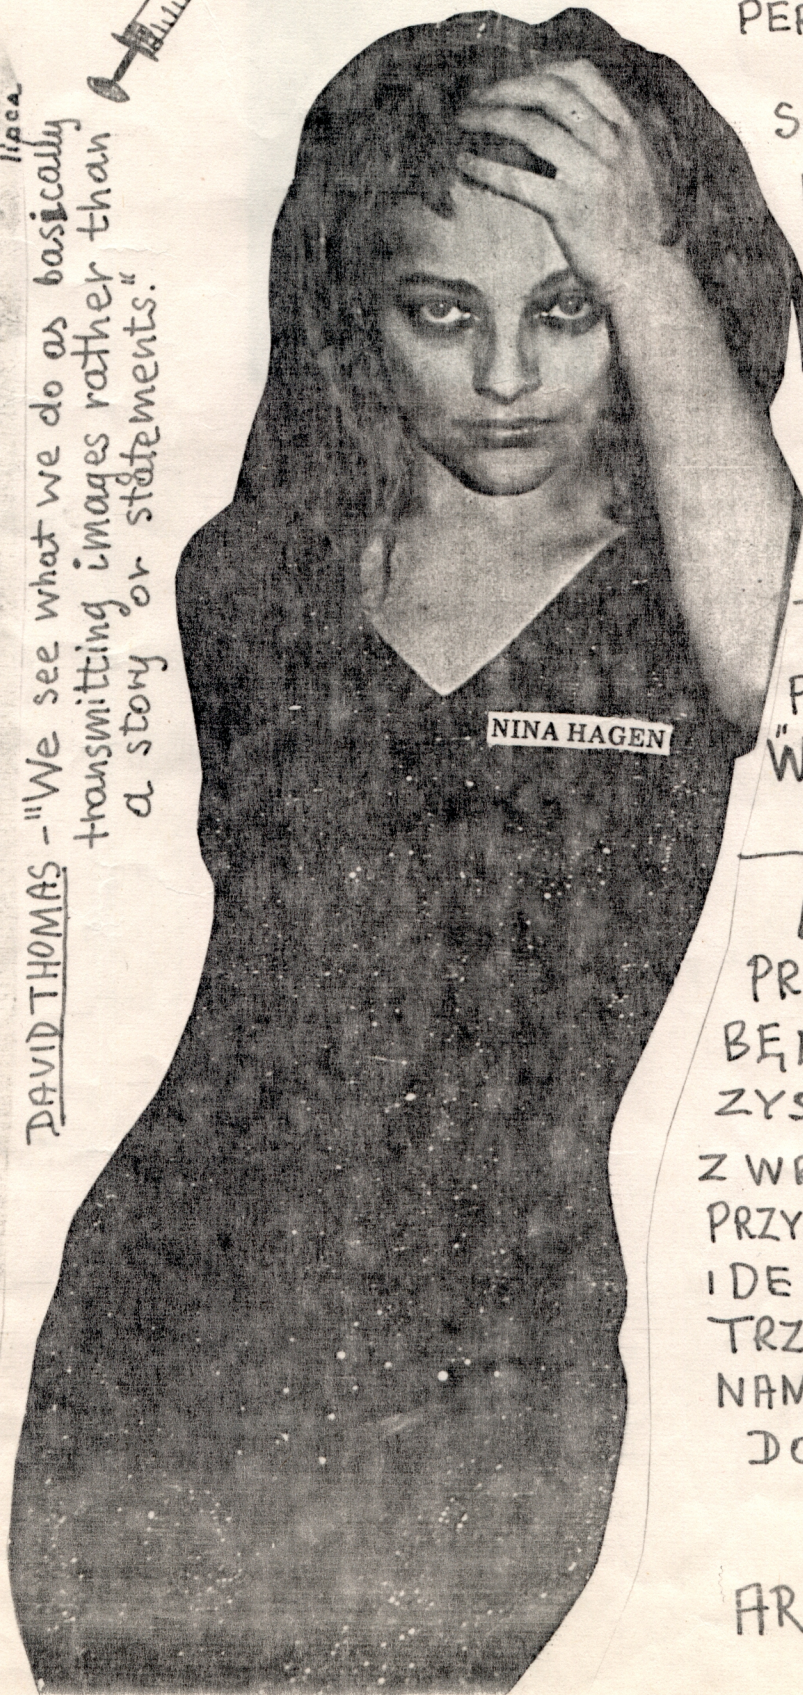 lipca
DAVID THOMAS - "We see what we do as basically
transmitting images rather than
a story or statements."
NINA HAGEN
PER
S
"W
PR
BĘD
ZYS
Z WE
PRZY
IDE
TRZ
NAM
DO
AR